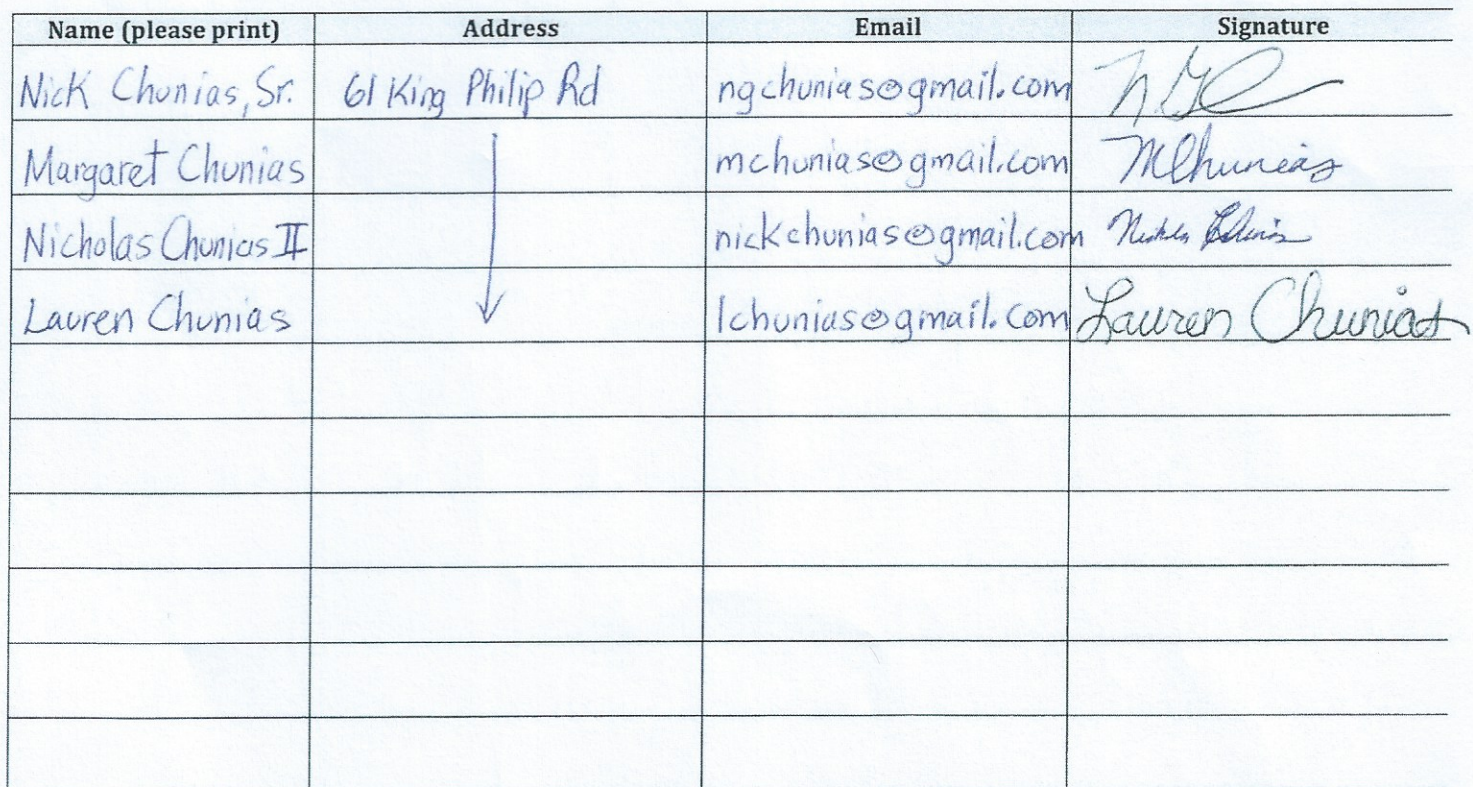 Name (please print) Address Email Signature
Nick Chunias, Sr. 61 King Philip Rd ngchunias@gmail.com
Margaret Chunias mchunias@gmail.com MChunias
Nicholas Chunias II nickchunias@gmail.com
Lauren Chunias lchunias@gmail.com Lauren Chunias